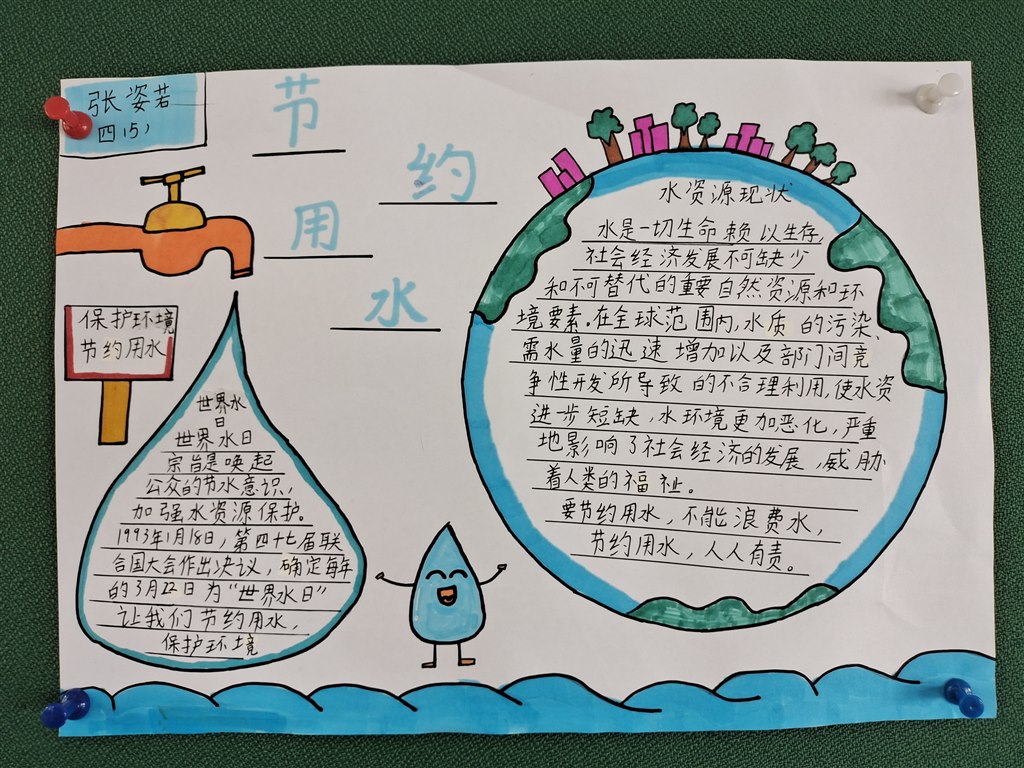 张姿若
四(5)
节
约
用
水
保护环境
节约用水
世界水
日
世界水日
宗旨是唤起
公众的节水意识，
加强水资源保护。
1993年1月18日，第四十七届联
合国大会作出决议，确定每年
的3月22日为“世界水日”
让我们节约用水，
保护环境
水资源现状
水是一切生命赖以生存，
社会经济发展不可缺少
和不可替代的重要自然资源和环
境要素。在全球范围内，水质的污染、
需水量的迅速增加以及部门间竞
争性开发所导致的不合理利用，使水资
进步短缺，水环境更加恶化，严重
地影响了社会经济的发展，威胁
着人类的福祉。
要节约用水，不能浪费水，
节约用水，人人有责。